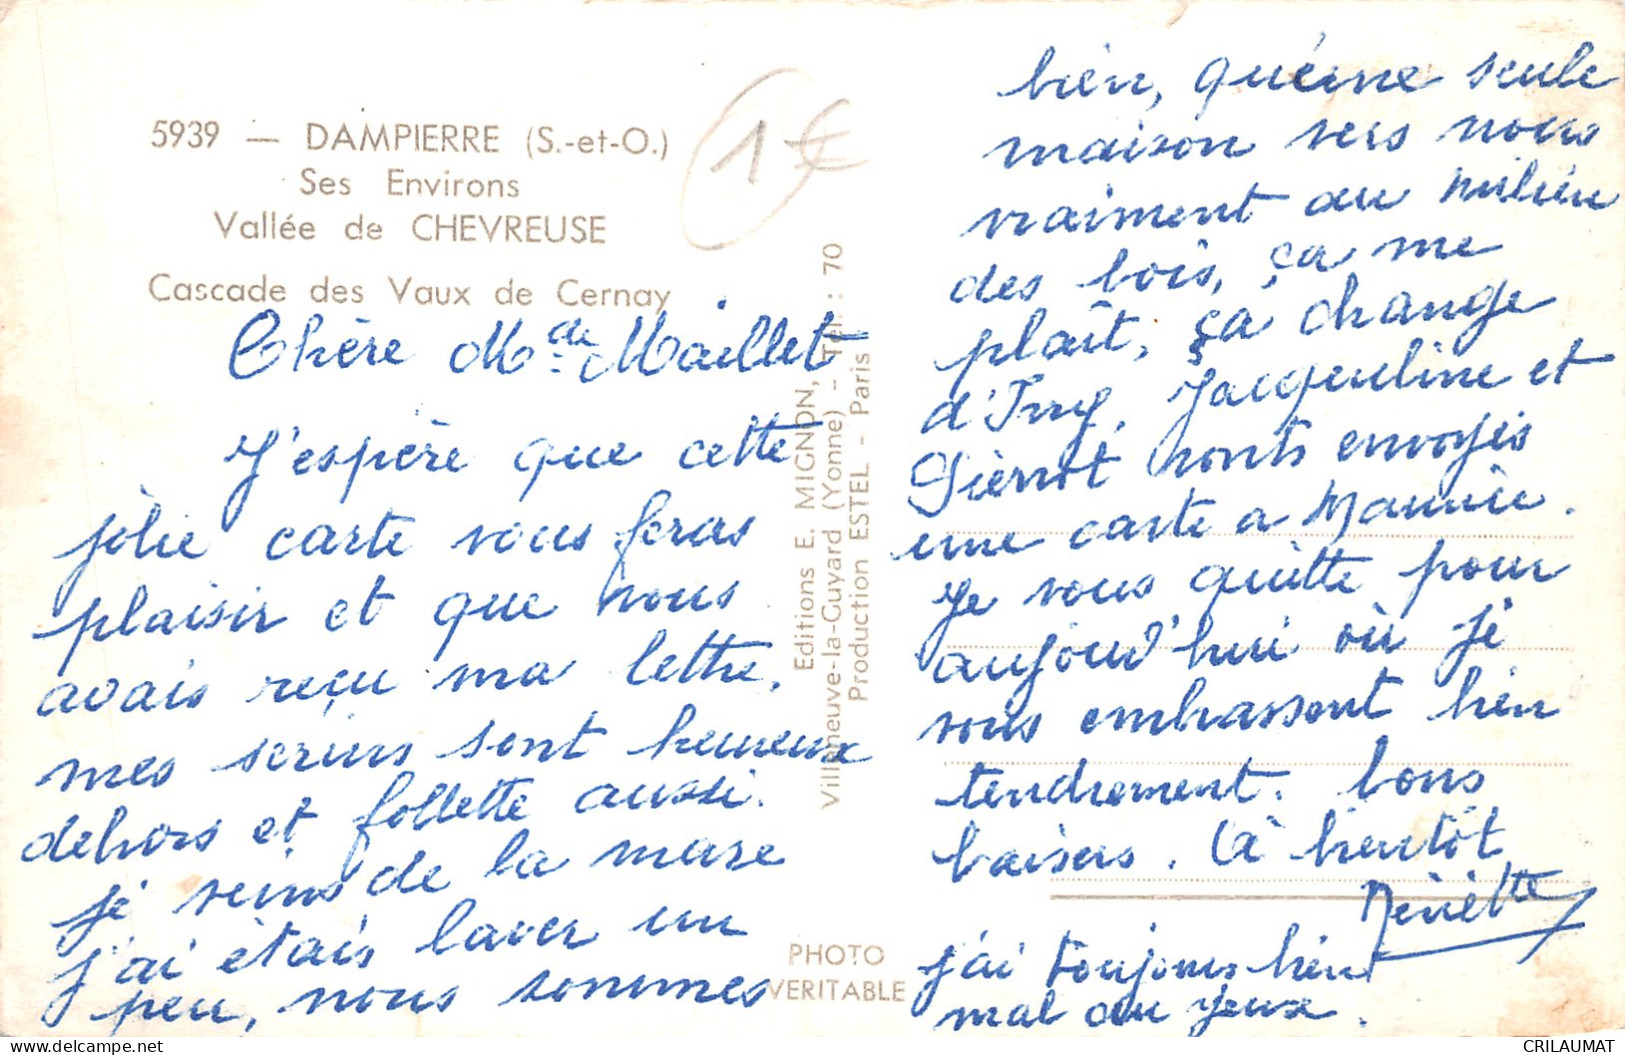 5939 — DAMPIERRE (S.-et-O.)
Ses Environs
Vallée de CHEVREUSE
Cascade des Vaux de Cernay
1€
Chère Mde Maillet
J'espère que cette
jolie carte vous feras
plaisir et que vous
avais reçu ma lettre,
mes serins sont heureux
dehors et follette aussi.
je viens de la mare
j'ai étais laver un
peu, nous sommes
Editions E. MIGNON,
Villeneuve-la-Guyard (Yonne) - Tél. : 70
Production ESTEL - Paris
PHOTO
VERITABLE
bien, qu'une seule
maison vers nous
vraiment au milieu
des bois, ça me
plaît, ça change
d'Ivry, Jacqueline et
Pierrot nonts envoyés
une carte a Maurice.
Je vous quitte pour
aujourd'hui où je
vous embrassent bien
tendrement. bons
baisers. à bientôt
j'ai toujours bient
mal au yeux.